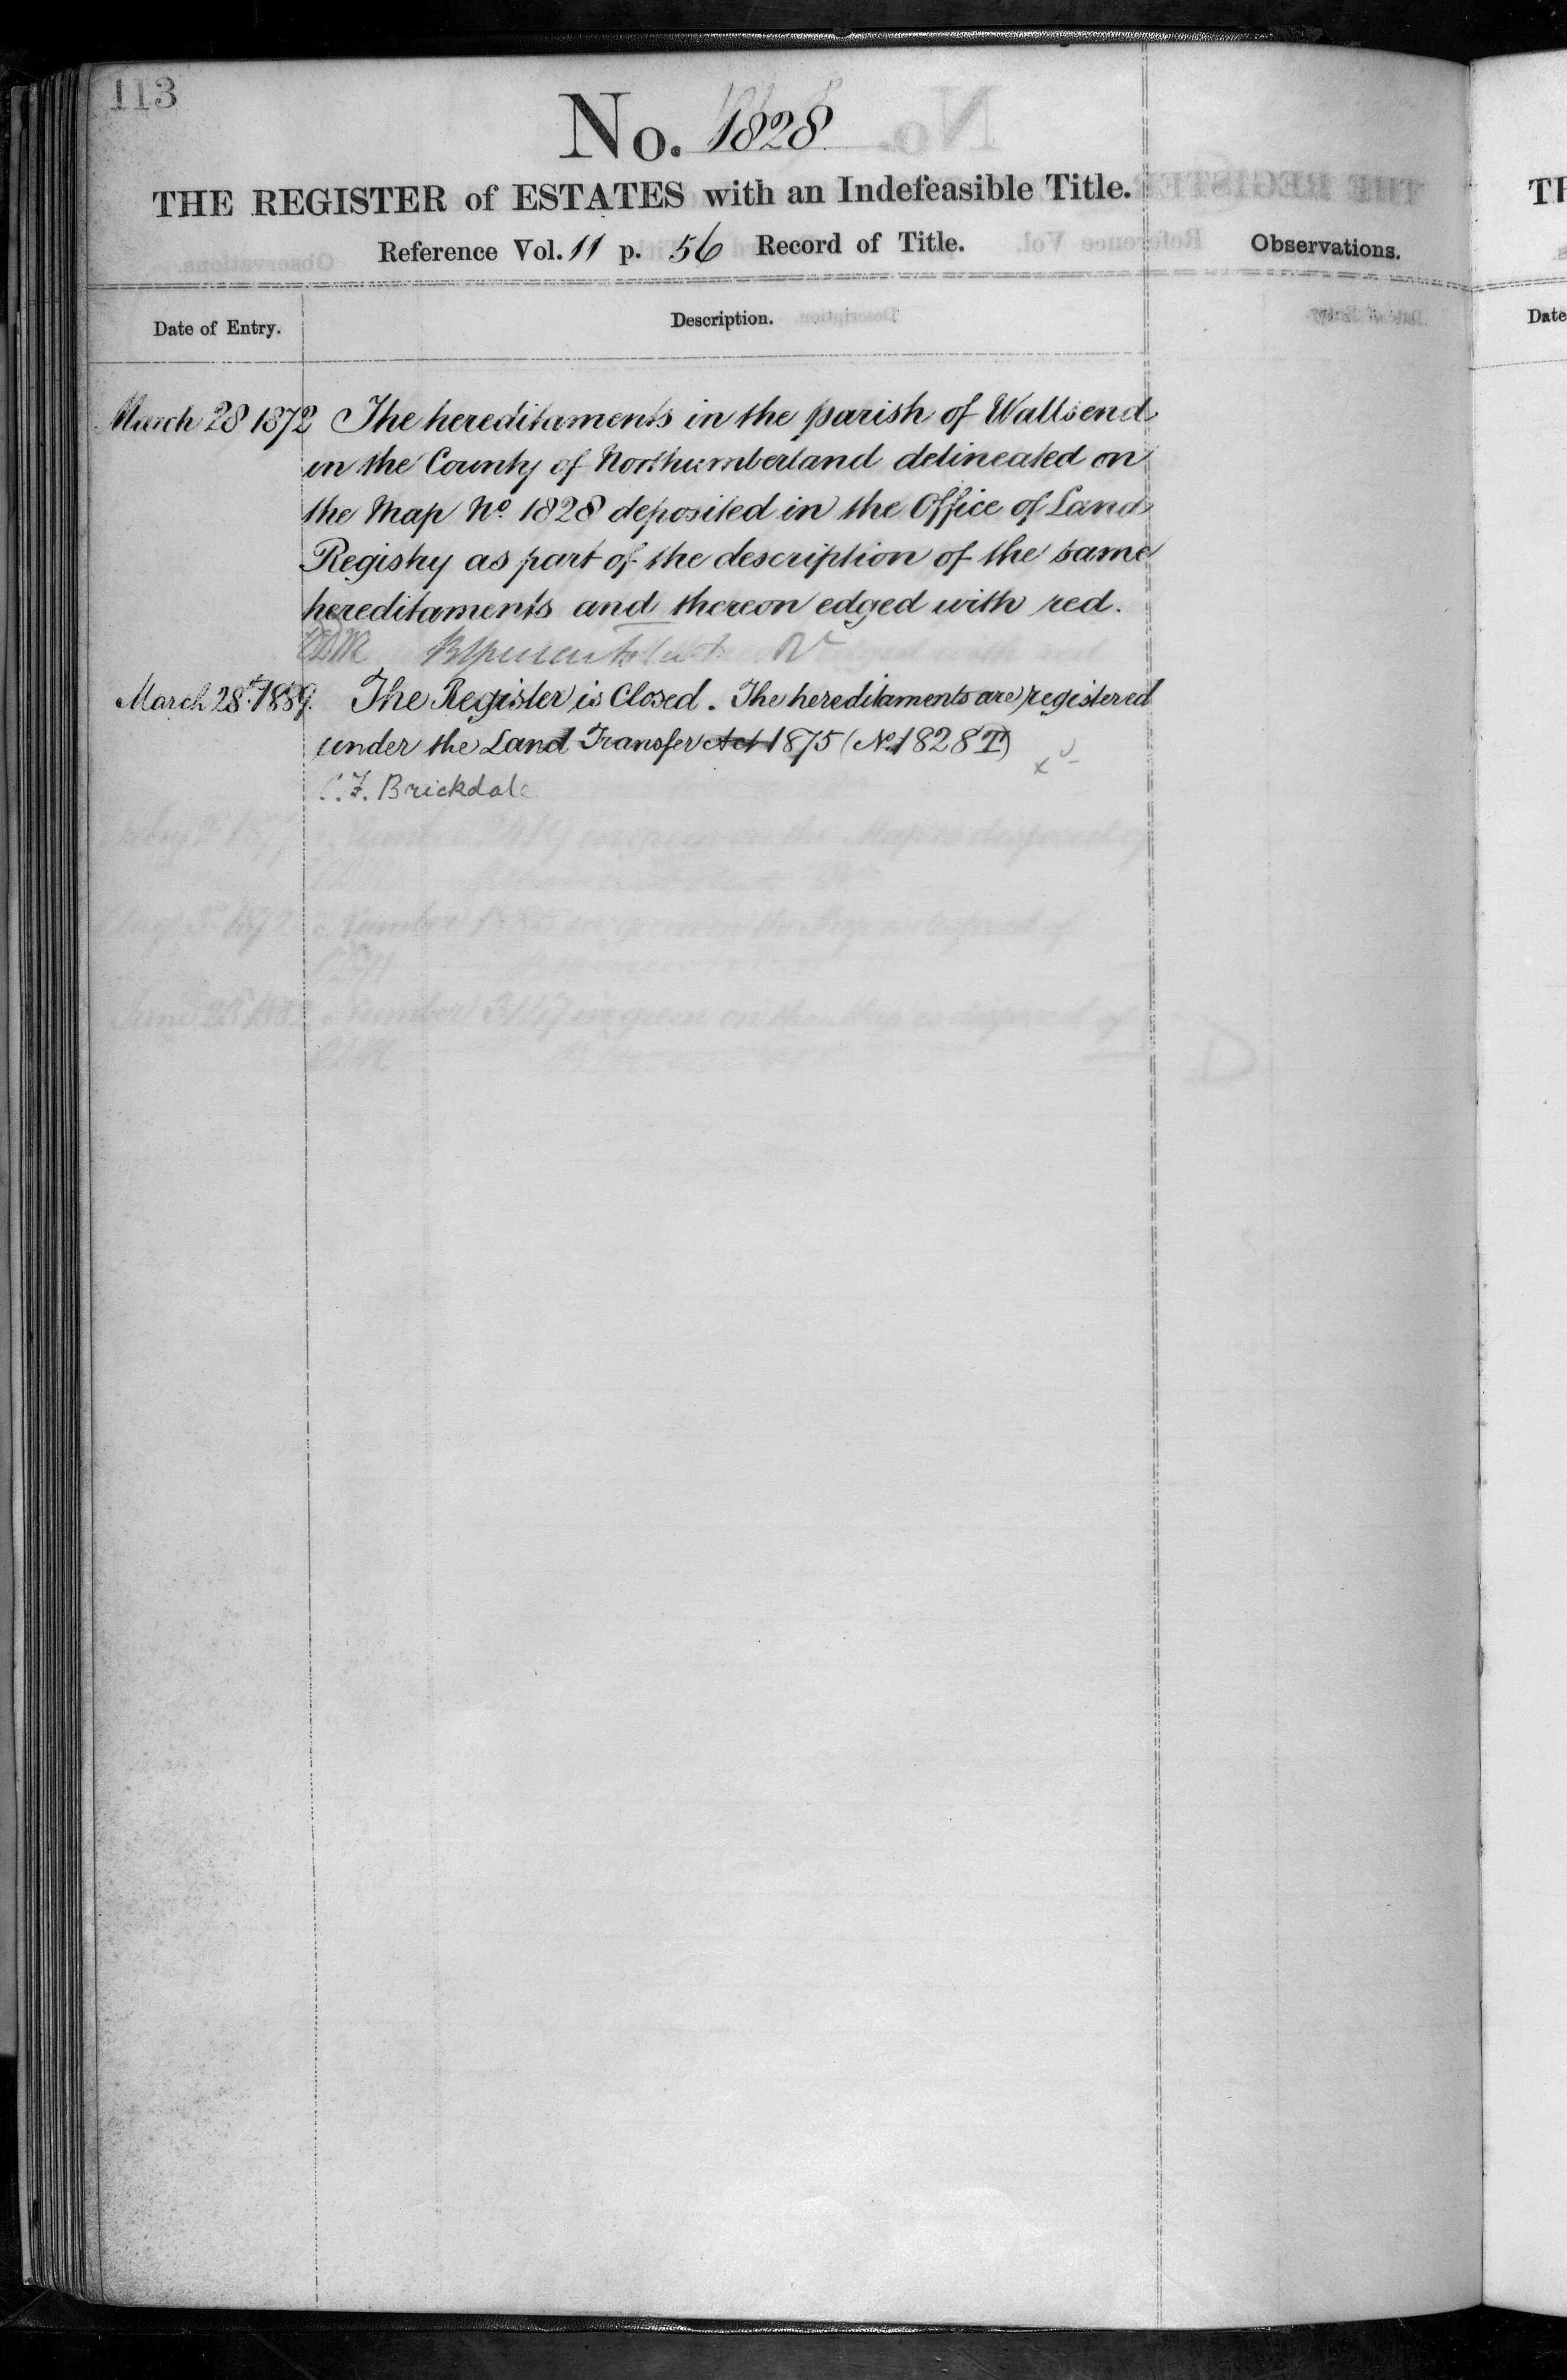 113
No. 1828
THE REGISTER of ESTATES with an Indefeasible Title.
Reference Vol. 11 p. 56 Record of Title.
Observations.
Date of Entry.
Description.
March 28 1872 The hereditaments in the parish of Wallsend
in the County of Northumberland delineated on
the Map No. 1828 deposited in the Office of Land
Registry as part of the description of the same
hereditaments and thereon edged with red.
March 28th 1889. The Register is Closed. The hereditaments are registered
under the Land Transfer Act 1875 (No. 1828 T)
C. F. Brickdale